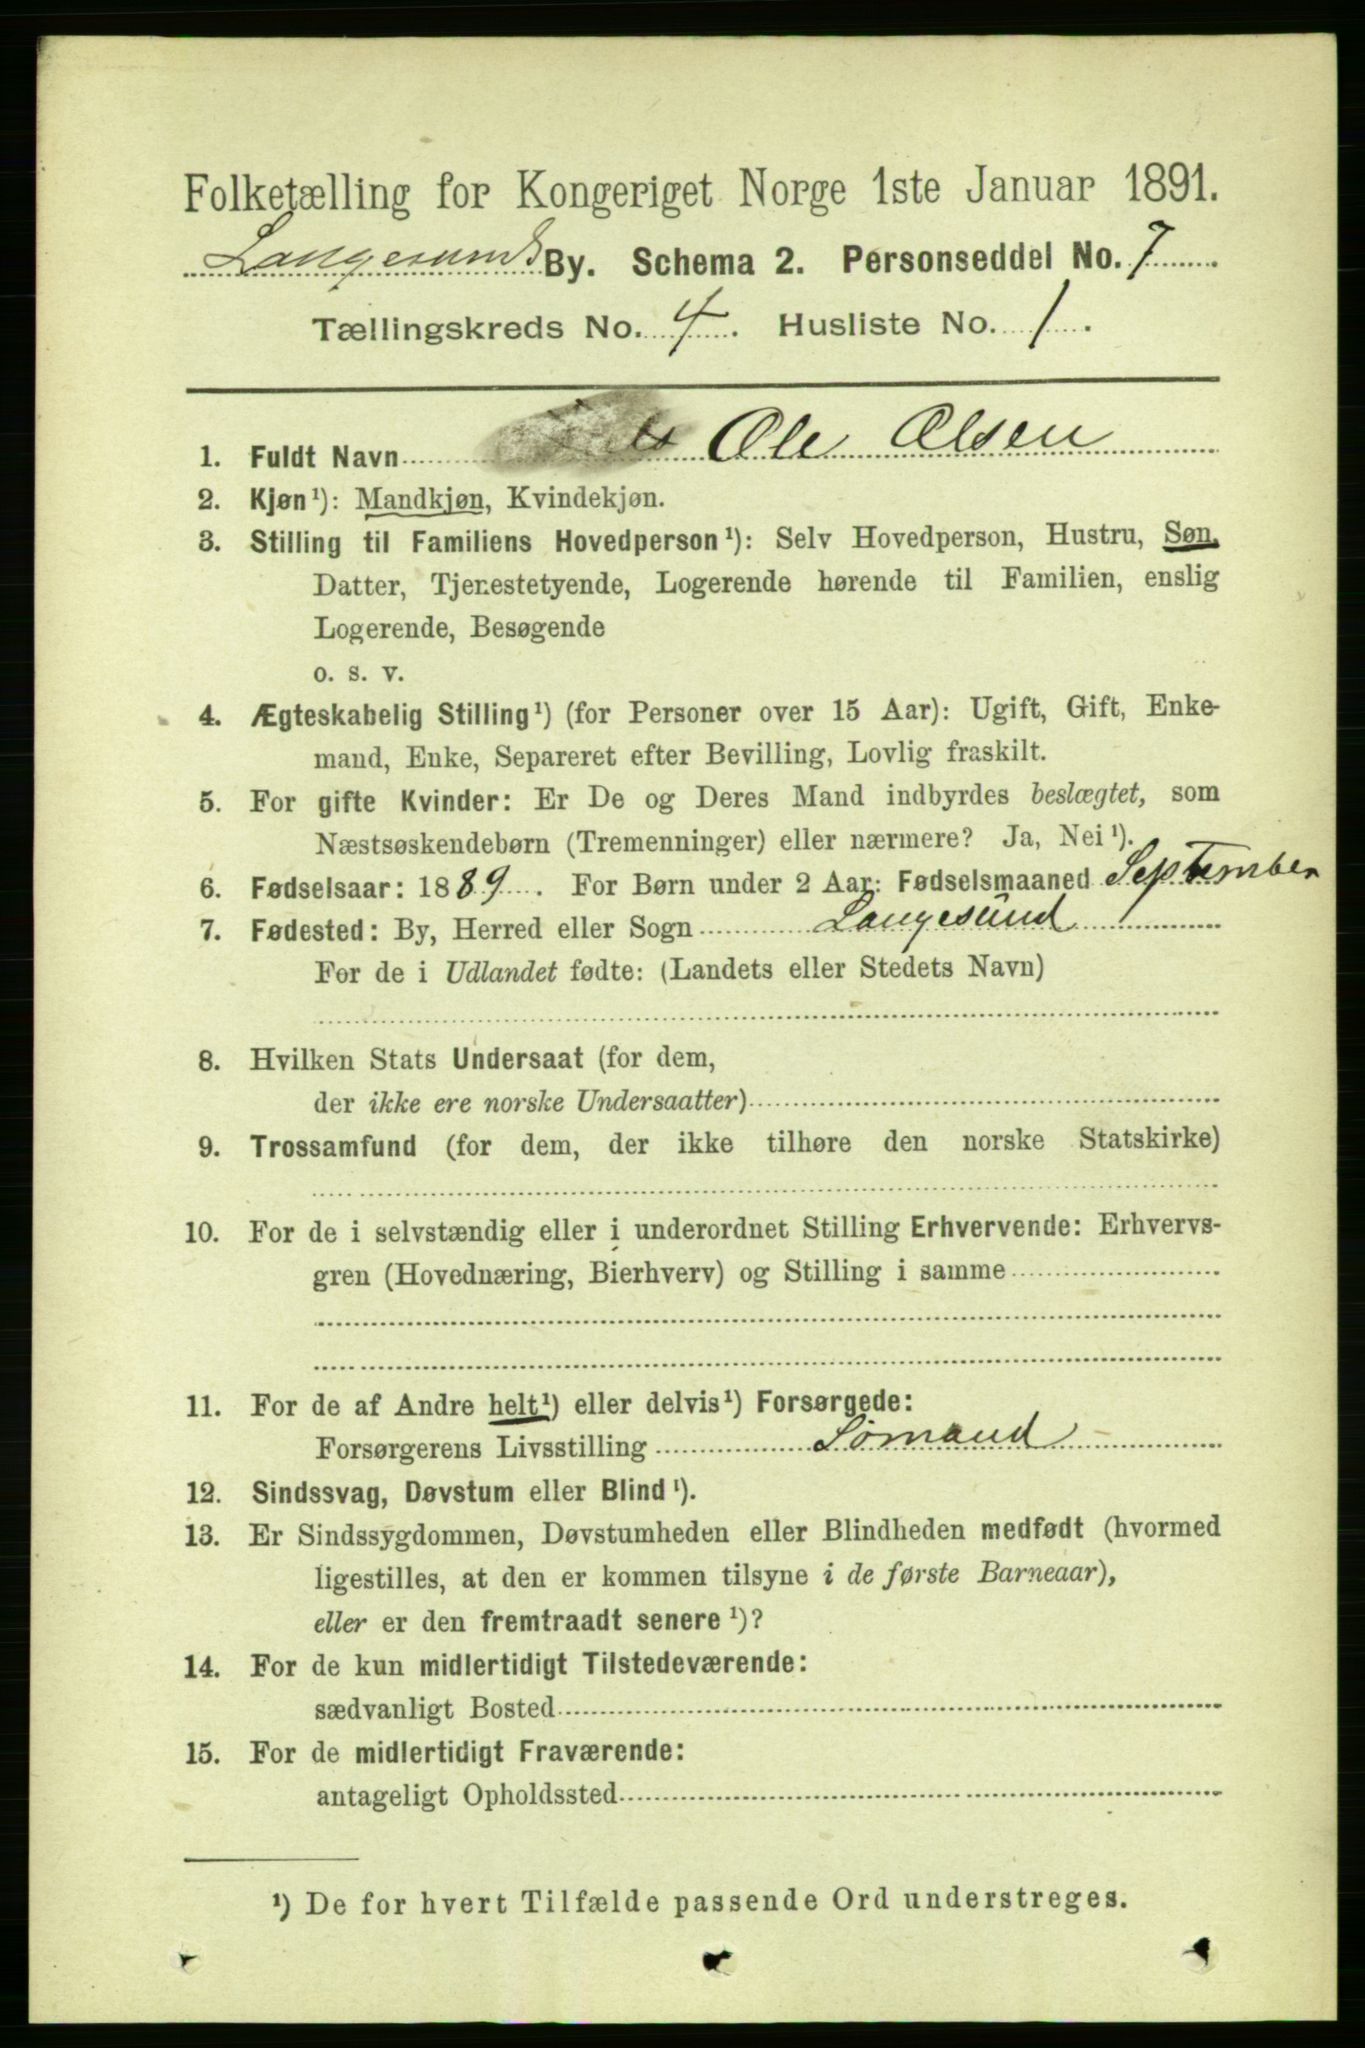 Folketælling for Kongeriget Norge 1ste Januar 1891.
Langesunds By. Schema 2. Personseddel No. 7
Tællingskreds No. 4. Husliste No. 1.
1. Fuldt Navn Ole Olsen
2. Kjøn¹): Mandkjøn, Kvindekjøn.
3. Stilling til Familiens Hovedperson¹): Selv Hovedperson, Hustru, Søn,
Datter, Tjenestetyende, Logerende hørende til Familien, enslig
Logerende, Besøgende
o. s. v.
4. Ægteskabelig Stilling¹) (for Personer over 15 Aar): Ugift, Gift, Enke-
mand, Enke, Separeret efter Bevilling, Lovlig fraskilt.
5. For gifte Kvinder: Er De og Deres Mand indbyrdes beslægtet, som
Næstsøskendebørn (Tremenninger) eller nærmere? Ja, Nei¹).
6. Fødselsaar: 1889. For Børn under 2 Aar: Fødselsmaaned September
7. Fødested: By, Herred eller Sogn Langesund
For de i Udlandet fødte: (Landets eller Stedets Navn)
8. Hvilken Stats Undersaat (for dem,
der ikke ere norske Undersaatter)
9. Trossamfund (for dem, der ikke tilhøre den norske Statskirke)
10. For de i selvstændig eller i underordnet Stilling Erhvervende: Erhvervs-
gren (Hovednæring, Bierhverv) og Stilling i samme
11. For de af Andre helt¹) eller delvis¹) Forsørgede:
Forsørgerens Livsstilling Sömand
12. Sindssvag, Døvstum eller Blind¹).
13. Er Sindssygdommen, Døvstumheden eller Blindheden medfødt (hvormed
ligestilles, at den er kommen tilsyne i de første Barneaar),
eller er den fremtraadt senere¹)?
14. For de kun midlertidigt Tilstedeværende:
sædvanligt Bosted
15. For de midlertidigt Fraværende:
antageligt Opholdssted
¹) De for hvert Tilfælde passende Ord understreges.